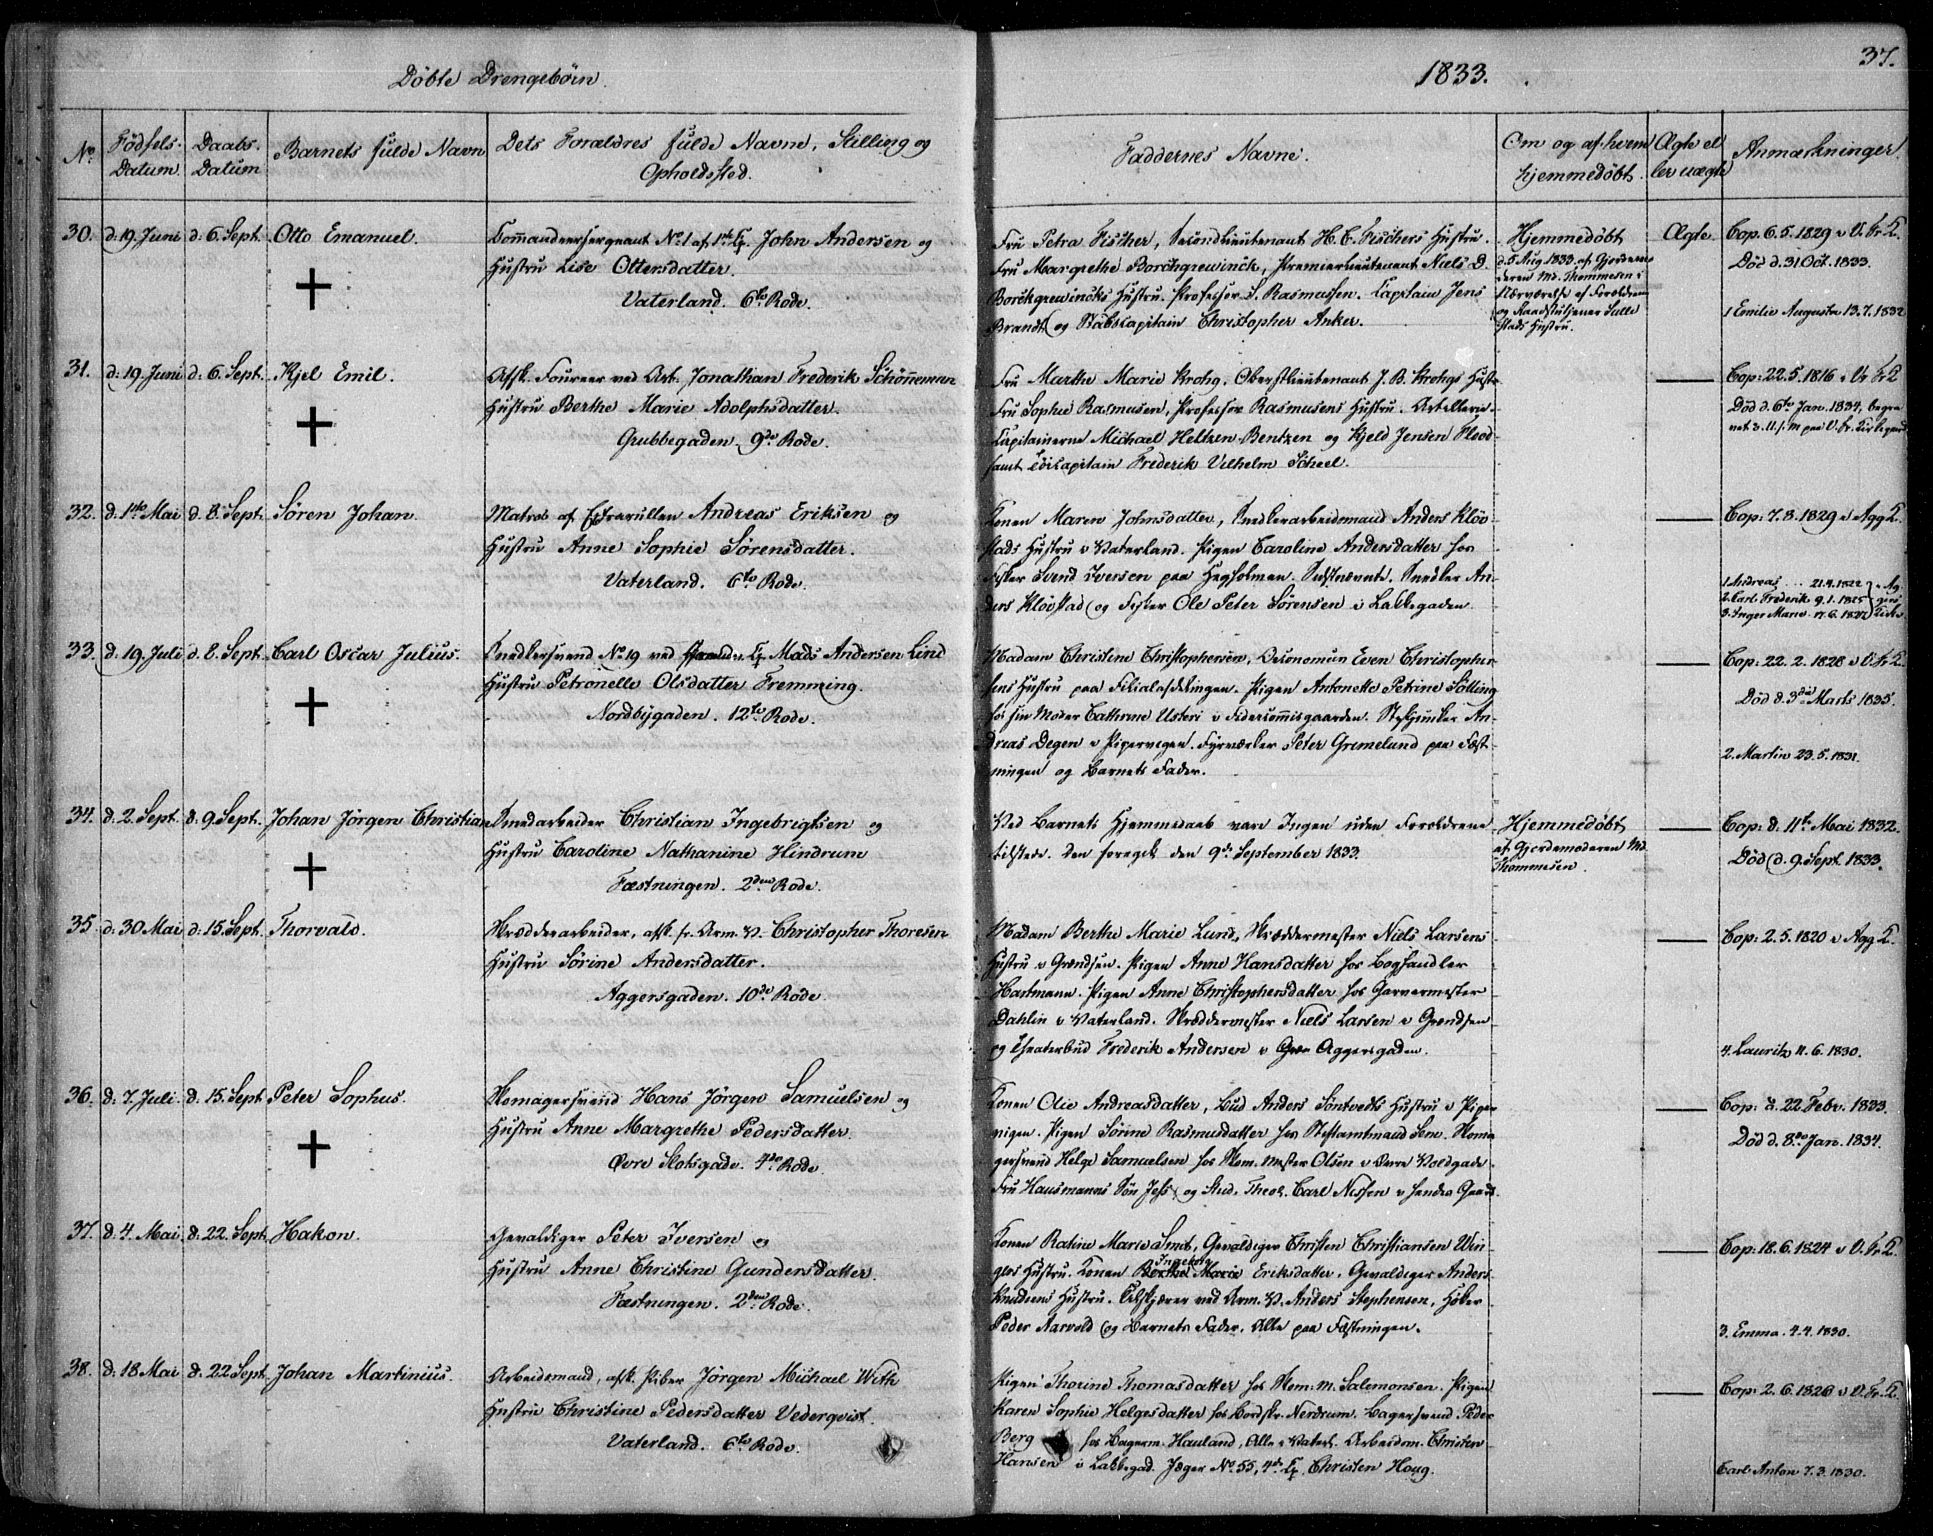 37.
Döbte Drengebörn.
1833.
No.
Födsels-
Datum.
Daabs-
Datum
Barnets fulde Navn
Dets Forældres fulde Navne, Stilling og
Opholdssted.
Faddernes Navne.
Om og af hvem
hjemmedöbt.
Ægte el-
ler uægte
Anmærkninger.
30. d. 19. Juni d. 6. Sept. Otto Emanuel.
Commandeersergeant No. 1 af 1ste Cp. John Andersen og
Hustru Lise Ottersdatter.
Vaterland. 6te Rode.
Fru Petra Fischer, Secondlieutenant H. C. Fischers Hustru.
Fru Margrethe Borchgrewinck, Premierlieutenant Niels D.
Borchgrewincks Hustru. Professor S. Rasmussen. Capitain Jens
Brandt og Stabscapitain Christopher Anker.
Hjemmedöbt
d. 5 Aug 1833 af Gjordemo-
deren Md. Thommesen i
Nærværelse af Forældrene
og Raadstutjener Sulle
stads Hustru.
Ægte
Cop. 6. 5. 1829 i V. Fr. K.
Död d. 31 Oct. 1833.
1 Emilie Augusta 13. 7. 1832
31. d. 19. Juni d. 6. Sept. Kjel Emil.
Afsk. Foureer ved Art. Jonathan Frederik Schönnemann
Hustru Berthe Marie Adolphsdatter.
Grubbegaden. 9de Rode.
Fru Marthe Marie Krohg, Oberstlieutenant J. B. Krohgs Hustr.
Fru Sophie Rasmusen, Professor Rasmusens Hustru. Artellerie-
Capitainerne Michael Heltzen Bentzen og Kjeld Jensen Flood
samt Capitain Frederik Vilhelm Scheel.
Cop: 22. 5. 1816 i Vr Fr K
Död d. 6te Jan. 1834, begra
vet 3. U. f. M paa V. Fr. Kirkegaard
32. d. 1ste Mai d. 8. Sept. Sören Johan.
Matros af Extrarullen Andreas Eriksen og
Hustru Anne Sophie Sörensdatter.
Vaterland. 6te Rode.
Konen Maren Johnsdatter, Snedkerarbeidsmand Anders Klöv-
stads Hustru i Vaterland. Pigen Caroline Andersdatter hos
Fisker Svend Iversen paa Hegholmen. Sidstnævnte. Snedker An-
ders Klövstad og Fisker Ole Peter Sörensen i Lakkegaden.
Cop: 7. 8. 1829 i Agg K.
1. Andreas 21. 4. 1822
2. Carl Frederik 9. 1. 1825
3. Inger Marie 17. 6. 1827
Ag-
gers
Kirke
33. d. 19. Juli d. 8. Sept. Carl Oscar Julius.
Snedkersvend No. 19 ved Cp. Mads Andersen Lind
Hustru Petronelle Olsdatter Fremming.
Nordbygaden. 12te Rode.
Madam Christine Christophersen, Oeconomus Even Christopher-
sens Hustru paa Filialafdelingen. Pigen Antonette Petrine Sölling
hos sin Moder Cathrine Usteri i Fidercommisgaarden. Styrjunker An-
dreas Degen i Pipervigen. Fyrværker Peter Gremelund paa Fæst-
ningen og Barnets Fader.
Cop: 22. 2. 1828 i V. Fr K.
Död d. 3die Marts 1835.
2. Martin 23. 5. 1831.
34. d. 2. Sept. d. 9. Sept. Johan Jörgen Christian
Smedarbeider Christian Ingebrigtsen og
Hustru Caroline Nathanine Hindrum
Fæstningen. 2den Rode.
Ved Barnets Hjemmedaab vare Ingen uden Forældrene
tilstede. Den foregik den 9de September 1833.
Hjemmedöbt
af Gjordemoderen Md.
Thommesen.
Cop: d. 11te Mai 1832.
Död d. 9. Sept. 1833.
35. d. 30 Mai d. 15. Sept. Thorvald.
Skrædderarbeider, afsk. fr. Arm. V. Christopher Thoresen
Hustru Sörine Andersdatter.
Aggersgaden. 10de Rode
Madam Berthe Marie Lund, Skræddermester Niels Larsens
Hustru i Grændsen. Pigen Anne Hansdatter hos Boghandler
Hartmann. Pigen Anne Christophersdatter hos Garvermester
Dahlin i Vaterland. Skræddermester Niels Larsen i Grændsen
og Theaterbud Frederik Andersen i Aggersgaden.
Cop: 2. 5. 1820 i Agg K.
4. Lauritz 11. 6. 1830.
36. d. 7. Juli. d. 15. Sept. Peter Sophus.
Skomagersvend Hans Jörgen Samuelsen og
Hustru Anne Margrethe Pedersdatter.
Övre Slotsgade. 4de Rode
Konen Olie Andreasdatter, Bud Anders Söntvedts Hustru i Piper-
vigen. Pigen Sörine Rasmusdatter hos Stiftamtmand Sem. Skoma-
gersvend Helge Samuelsen hos Skom. Mester Olsen i Övre Voldgade.
Fru Hausmanns Sön Jess og Stud. Theol. Carl Nissen i hendes Gaard.
Cop: d. 22. Febr. 1833.
Död d. 8de Jan. 1834.
37. d. 4. Mai d. 22. Sept. Hakon.
Gevaldiger Peter Iversen og
Hustru Anne Christine Gundersdatter.
Fæstningen. 2den Rode.
Konen Ratine Marie Smit, Gevaldiger Christen Christiansen Win-
gers Hustru. Konen Berthe Ingeborg Marie Eriksdatter. Gevaldiger Anders
Knudsens Hustru. Tilskjærer ved Arm. V. Anders Stephensen, Höker
Peder Aarvold og Barnets Fader. Alle paa Fæstningen.
Cop: 18. 6. 1824 i V. Fr. K.
3. Emma. 4. 4. 1830.
38. d. 18 Mai d. 22 Sept. Johan Martinius.
Arbeidsmand, afsk. Piber Jörgen Michael With
Hustru Christine Pedersdatter Vederqvist.
Vaterland. 6te Rode.
Pigen Thorine Thomasdatter hos Skom: M. Salomonsen. Pigen
Karen Sophie Helgesdatter hos Bordskr. Nerdrum. Bagersvend Peder
Berg hos Bagerm. Hauland, Alle i Vaterl. Arbeidsm. Christen
Hansen i Lakkegad. Jæger No 55, 4de Cp. Christen Houg.
Cop: 2. 6. 1826 i V. Fr. K.
Carl Anton 7. 3. 1830.